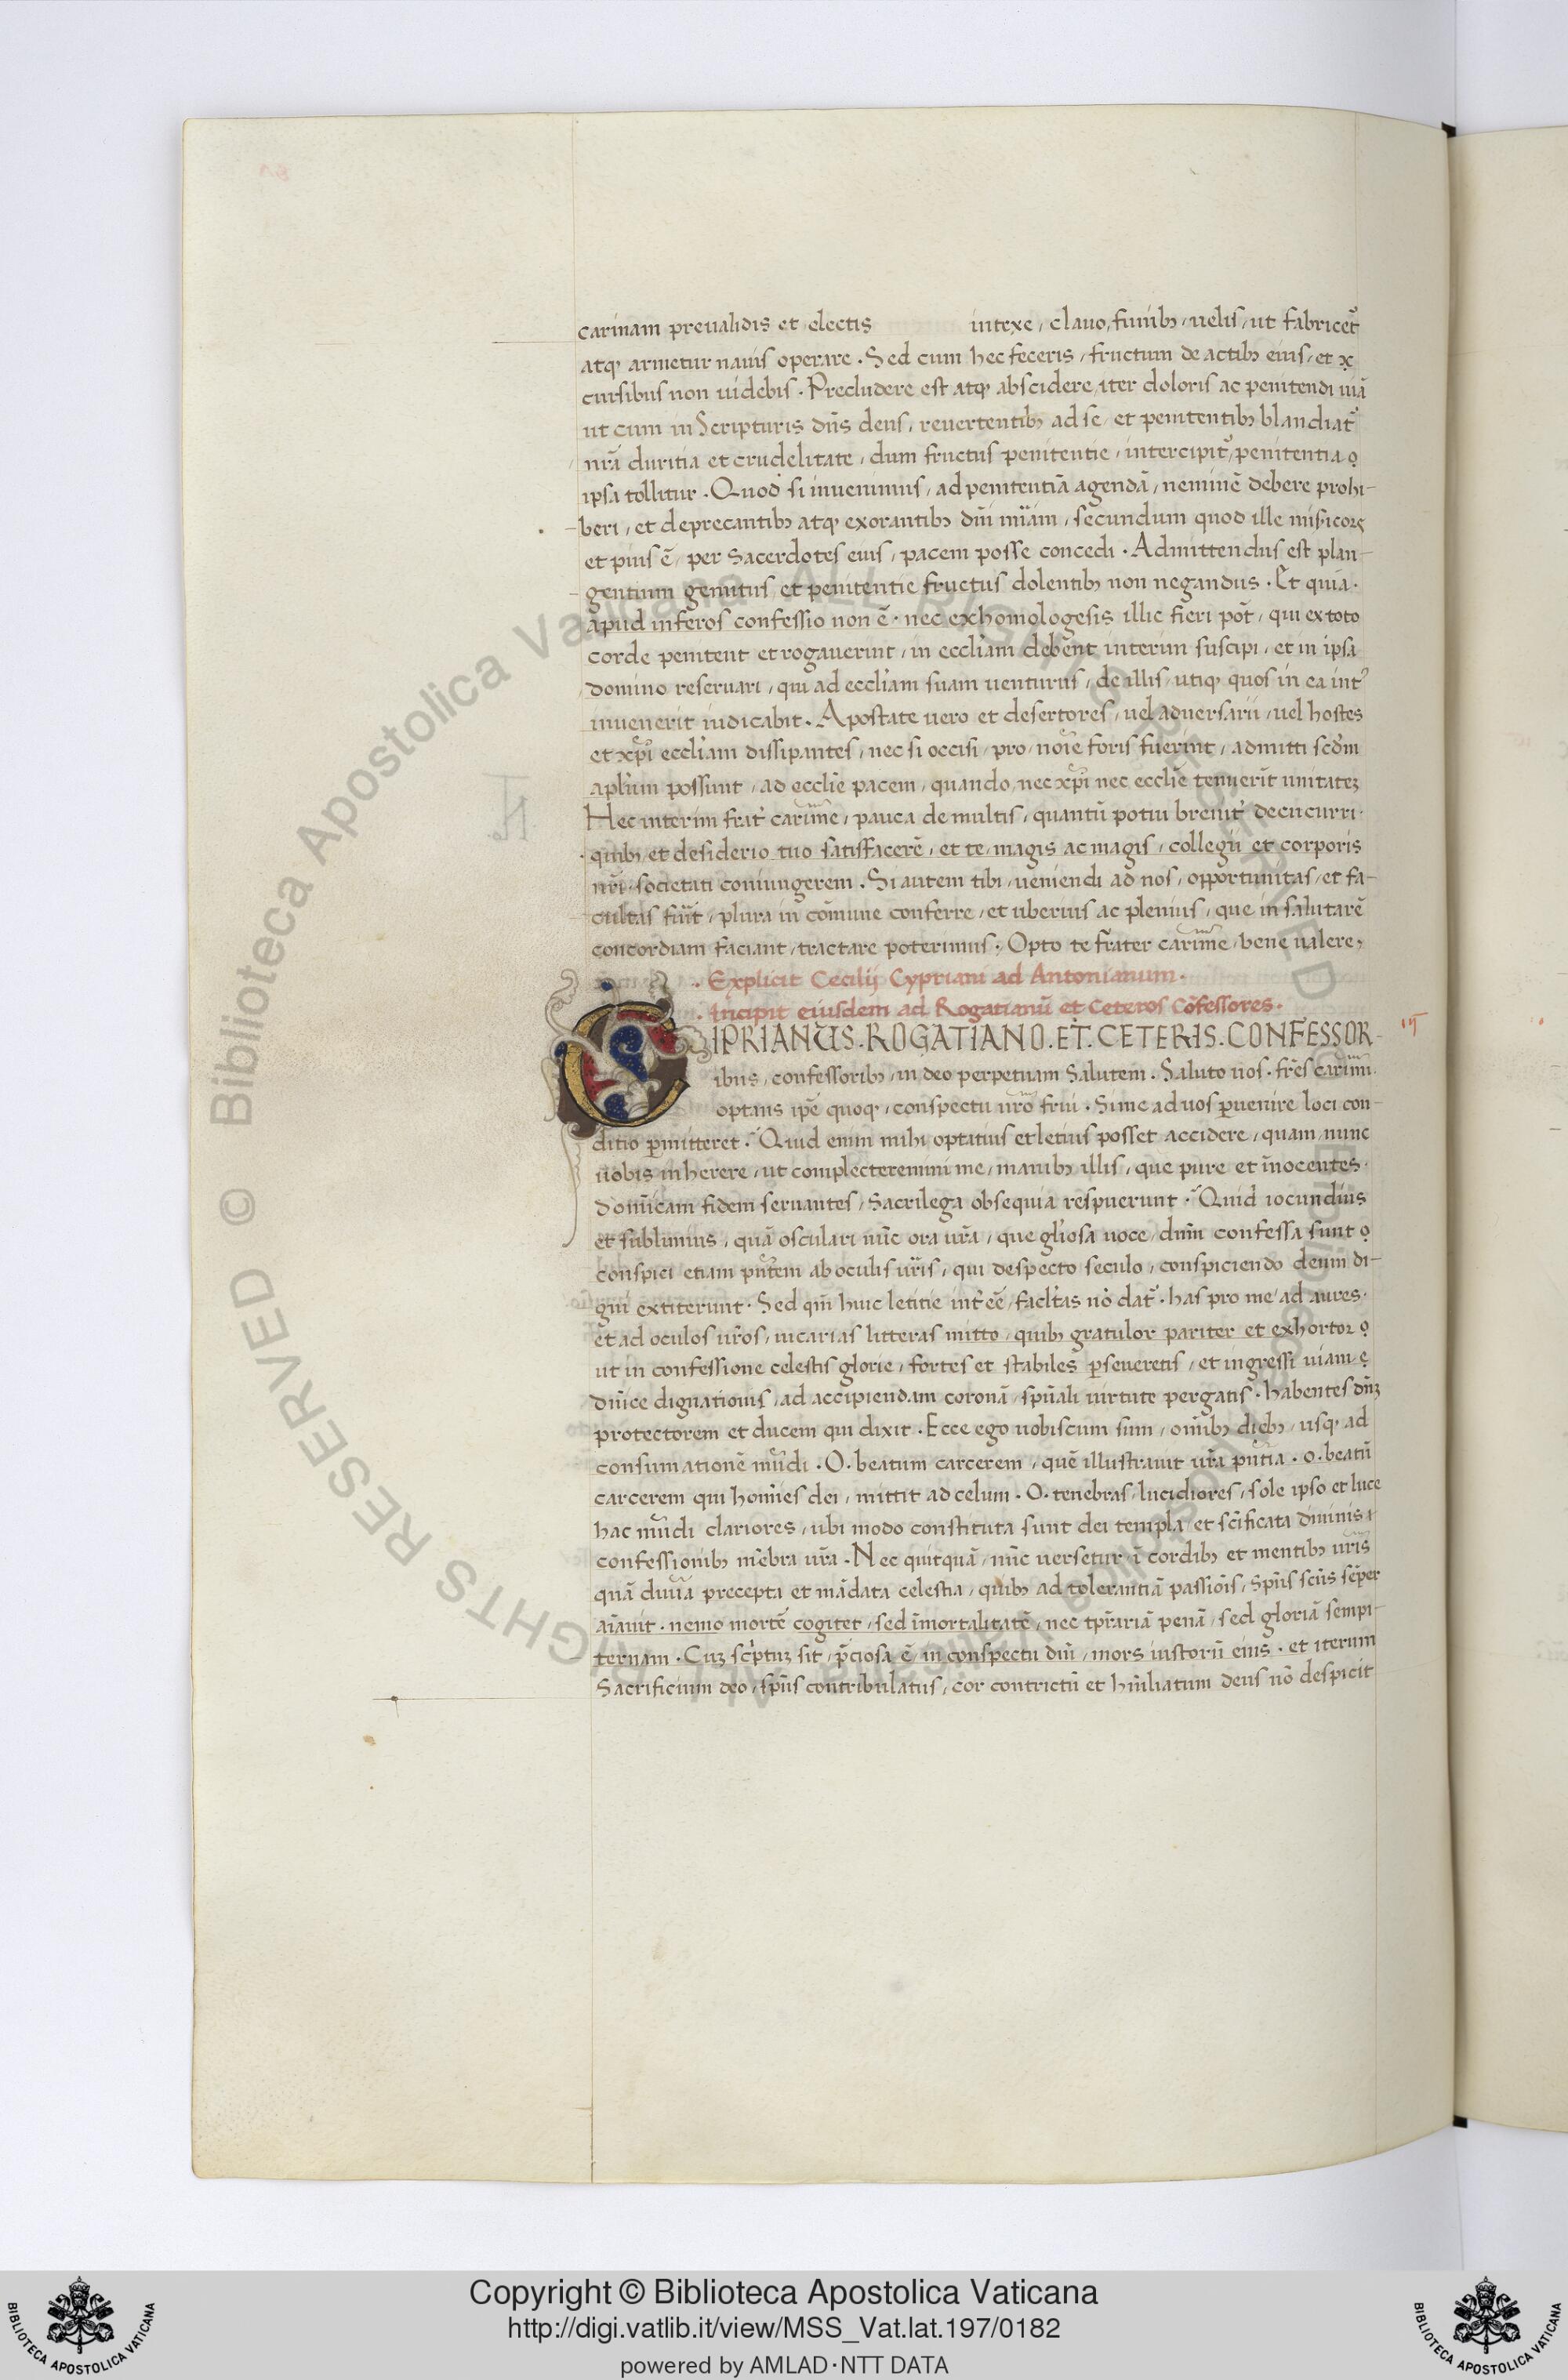 carinam preualidis et electis intexe, clauo, funib; uelis, ut fabricet᷑
atq; armetur nauis operare. Sed cum hec feceris, fructum de actib; eius, et ex
cursibus non uidebis. Precludere est atq; abscidere, iter doloris ac penitendi uiā
ut cum in Scripturis dn̄s deus, reuertentib; ad se, et penitentib; blandiat᷑
nr̄a duritia et crudelitate, dum fructus penitentie, intercipit᷑, penitentia
ipsa tollitur. Quod si inuenimus, ad penitentiā agendā, neminē debere prohi-
beri, et deprecantib; atq; exorantib; dn̄i mīam, secundum quod ille misicors
et pius ē, per sacerdotes eius, pacem posse concedi. Admittendus est plan-
gentium gemitus, et penitentie fructus dolentib; non negandus. Et quia.
apud inferos confessio non ē. nec exhomologesis illic fieri pōt, qui ex toto
corde penitent et rogauerint, in eccl̄iam debent interim suscipi, et in ipsa
domino reseruari, qui ad eccl̄iam suam uenturus, de illis, utiq; quos in ea int᷑
inuenerit iudicabit. Apostate uero et desertores, uel aduersarii, uel hostes
et xp̄i eccl̄iam dissipantes, nec si occisi, pro noīe foris fuerint, admitti scd̄m
apl̄um possunt, ad eccl̄ie pacem, quando, nec xp̄i nec eccl̄ie tenuerīt unitatez
Hec interim frat᷑ carīme, pauca de multis, quantū potui breuit᷑ decucurri.
quib; et desiderio tuo satisfacerē, et te magis ac magis, collegii et corporis
nr̄i. societati coniungerem. Si autem tibi, ueniendi ad nos, opportunitas, et fa-
cultas fūit, plura in cōmune conferre, et uberius ac plenius, que in salutarē
concordiam faciant, tractare poterimus. Opto te frater carīme, bene ualere,
. Explicit Cecilij Cypriani ad Antonianum.
. Incipit eiusdem ad Rogatianū et Ceteros Cōfessores.
CIPRIANUS. ROGATIANO. ET. CETERIS. CONFESSOR-
ibus, confessorib; in deo perpetuam Salutem. Saluto uos. fr̄es carīmi.
optans ip̄e quoq; conspectu ur̄o frui. Si me ad uos p̲uenire loci con-
ditio p̲mitteret. Quid enim mihi optatius et letius posset accidere, quam, nunc
uobis inherere, ut complecteremini me, manib; illis, que pure et īnocentes.
dominicam fidem seruantes, Sacrilega obsequia respuerunt. Quid iocundius
et sublimius, quā osculari nūc ora ur̄a, que gl̄iosa uoce, dn̄m confessa sunt
conspici etiam pn̄tem ab oculis ur̄is, qui despecto seculo, conspiciendo deum di-
gni extiterunt. Sed qm̄ huic letitie int᷑ eē, facl̄tas nō dat᷑. has pro me, ad aures.
et ad oculos ur̄os, uicarias litteras mitto, quib; gratulor pariter et exhortor
ut in confessione celestis glorie, fortes et stabiles p̲seueretis, et ingressi uiam
dn̄ice dignationis, ad accipiendam coronā, spūali uirtute pergatis. habentes dn̄z
protectorem et ducem qui dixit. Ecce ego uobiscum sum, om̄ib; dieb; usq; ad
consumationē mūdi. O. beatum carcerem, quē illustrauit ur̄a pn̄tia. o. beatū
carcerem qui homīes dei, mittit ad celum. O. tenebras, lucidiores, sole ipso et luce
hac mūdi clariores, ubi modo constituta sunt dei templa, et sc̄ificata diuinis,
confessionib; mēbra ur̄a. Nec quitquā, nūc uersetur, ī cordib; et mentib; ur̄is
quā diuīa precepta et mādata celestia, quib; ad tolerantiā passiōis, Spūs scūs sēper
aīauit. nemo mortē cogitet, sed īmortalitatē, nec tpr̄ariā penā, sed gloriā sempi-
ternam. Cuz scr̄ptuz sit, p̄ciosa ē, in conspectu dn̄i, mors iustorū eius. et iterum
Sacrificium deo, spūs contribulatus, cor contrictū et hūiliatum deus nō despicit
Copyright © Biblioteca Apostolica Vaticana
http://digi.vatlib.it/view/MSS_Vat.lat.197/0182
powered by AMLAD·NTT DATA
© Biblioteca Apostolica Vaticana ALL RIGHTS RESERVED
BIBLIOTECA APOSTOLICA VATICANA
BIBLIOTECA APOSTOLICA VATICANA